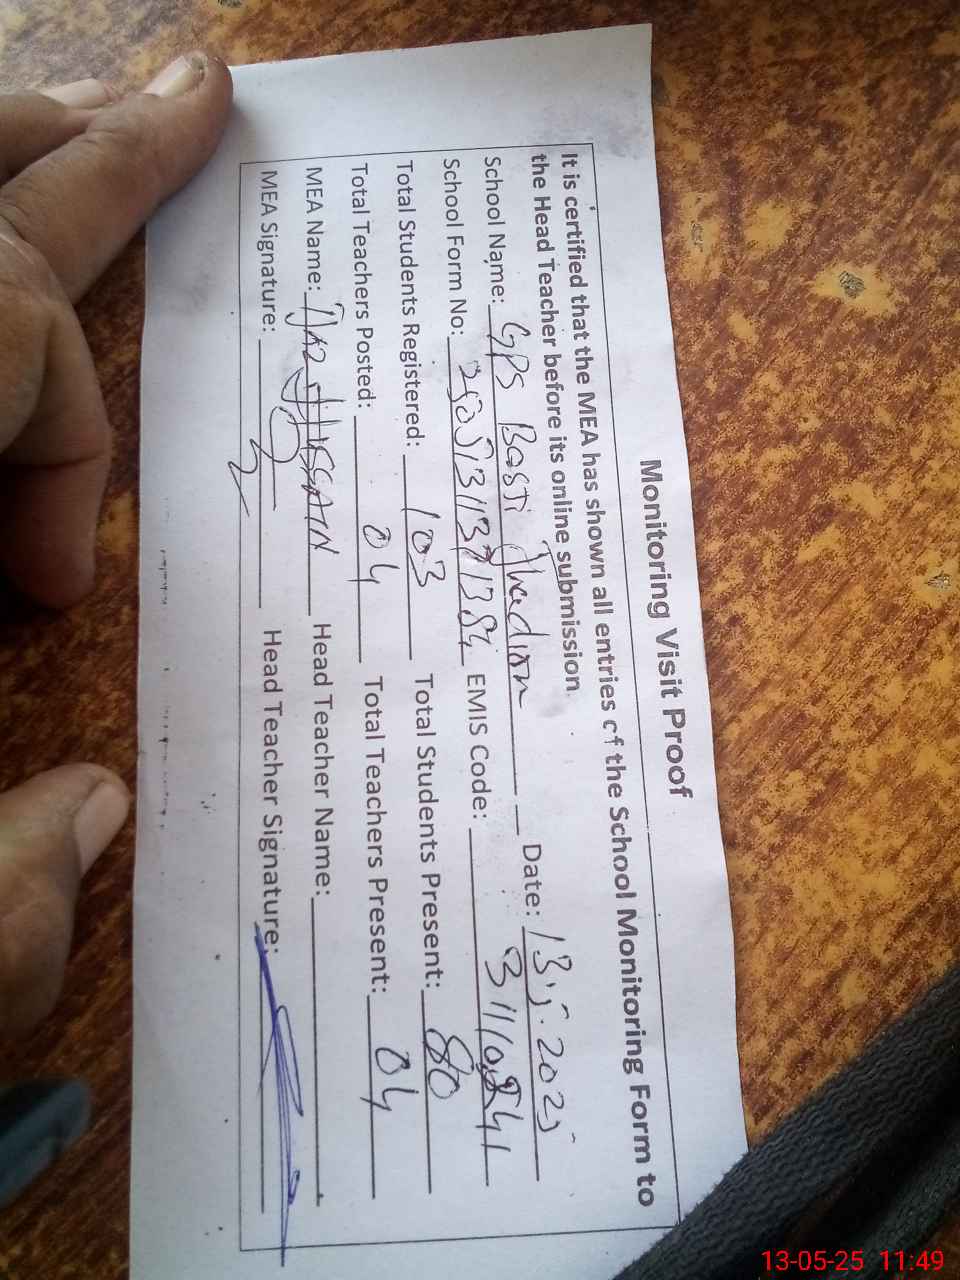 Monitoring Visit Proof
It is certified that the MEA has shown all entries of the School Monitoring Form to
the Head Teacher before its online submission.
School Name: GPS Basti Date: 13.5.2025
School Form No: EMIS Code:
Total Students Registered: 103 Total Students Present: 80
Total Teachers Posted: 04 Total Teachers Present: 04
MEA Name: HUSSAIN Head Teacher Name:
MEA Signature: Head Teacher Signature:
13-05-25 11:49